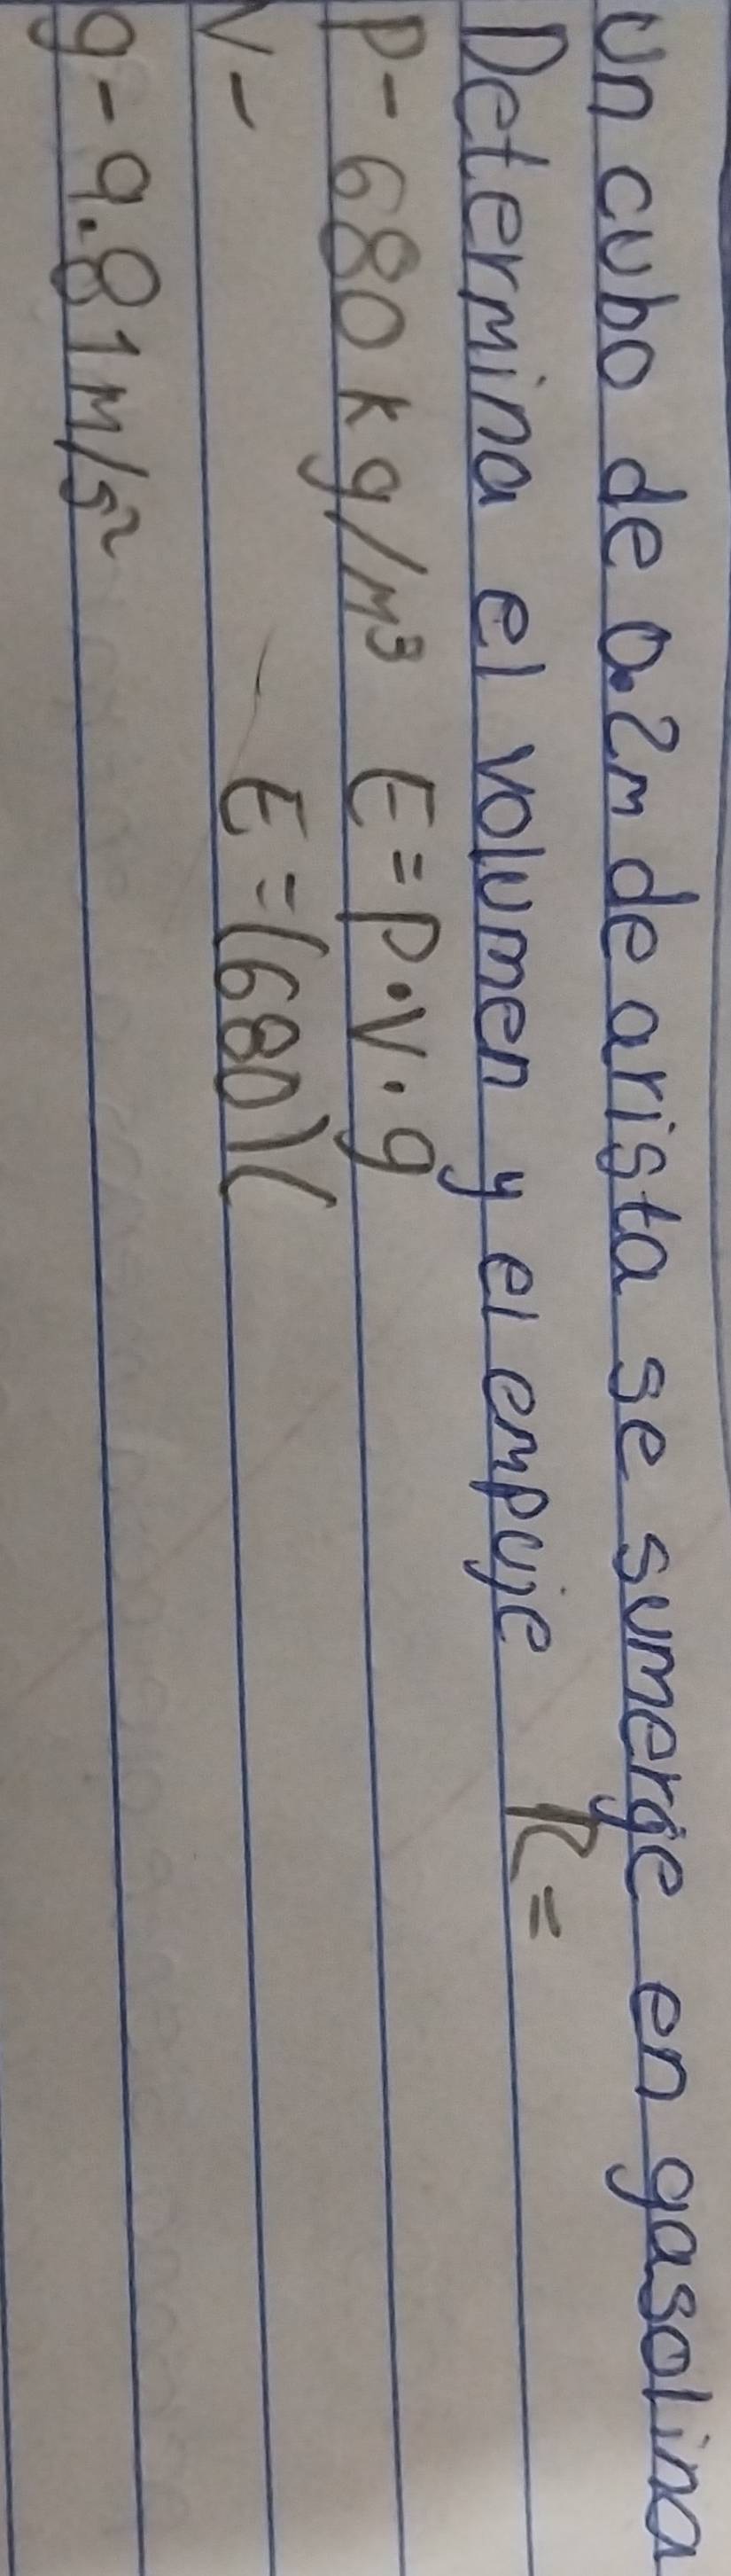 Un cubo de 0.2m de arista se sumerge en gasolina
Determina el volumen y el empuje R=
P- 680 kg/m³ E=P·V·g
V- E=(680)(
g-9.81m/s²